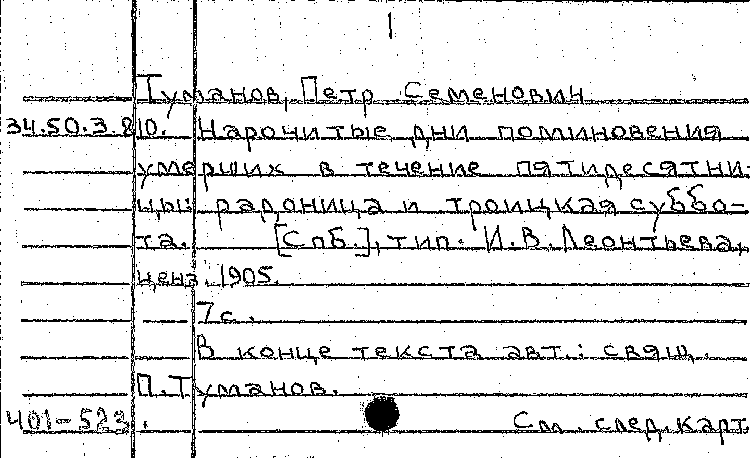 1
Туманов, Петр Семенович
34.50.3.810. Нарочитые дни поминовения
умерших в течение пятидесятни-
цы: радоница и троицкая суббо-
та. [Спб.], тип. И.В. Леонтьева,
ценз. 1905.
7 с.
В конце текста авт.: свящ.
П. Туманов.
401-523. См. след. карт